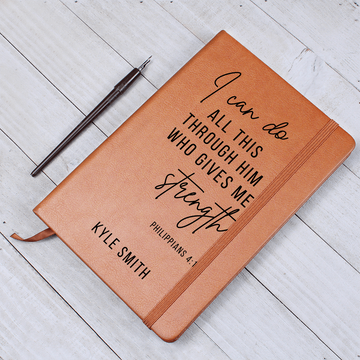 I can do
ALL THIS
THROUGH HIM
WHO GIVES ME
strength
PHILIPPIANS 4:1
KYLE SMITH